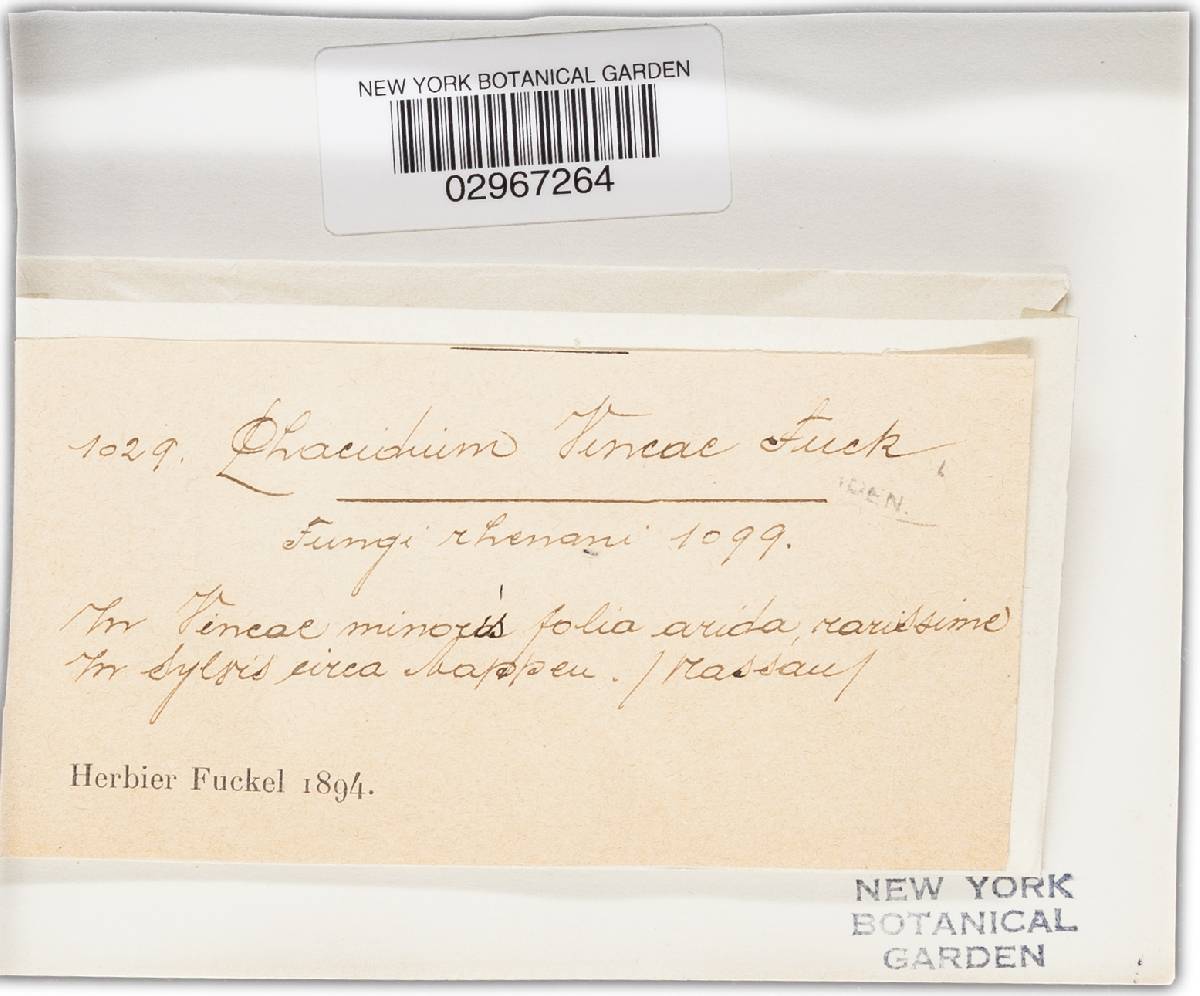 NEW YORK BOTANICAL GARDEN
02967264
1029. Phacidium Vincae Fuck.
Fungi rhenani 1099.
In Vincae minoris folia arida, rarissime
In sylvis circa Mappen. /Nassau/
Herbier Fuckel 1894.
NEW YORK
BOTANICAL
GARDEN